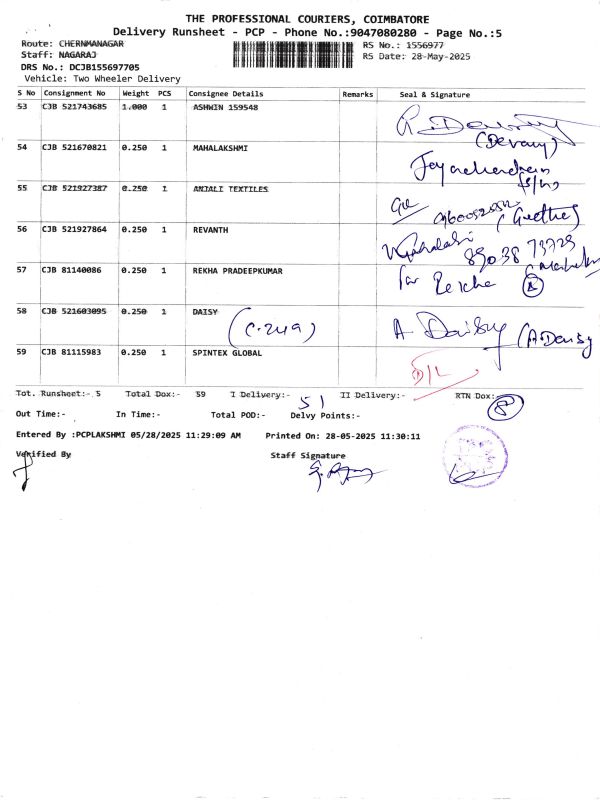 THE PROFESSIONAL COURIERS, COIMBATORE
Delivery Runsheet - PCP - Phone No.:9047080280 - Page No.:5
Route: CHERNMANAGAR RS No.: 1556977
Staff: NAGARAJ RS Date: 28-May-2025
DRS No.: DCJB155697705
Vehicle: Two Wheeler Delivery
S No Consignment No Weight PCS Consignee Details Remarks Seal & Signature
53 CJB 521743685 1.000 1 ASHWIN 159548
(Devany)
54 CJB 521670821 0.250 1 MAHALAKSHMI
55 CJB 521927387 0.250 1 ANJALI TEXTILES
(Geetha)
56 CJB 521927864 0.250 1 REVANTH
89038 73729
57 CJB 81140086 0.250 1 REKHA PRADEEPKUMAR
for
58 CJB 521603095 0.250 1 DAISY
(C.249) A Daisy (A.Daisy
59 CJB 81115983 0.250 1 SPINTEX GLOBAL
D/L
Tot. Runsheet:- 5 Total Dox:- 59 I Delivery:- 51 II Delivery:- RTN Dox:- 8
Out Time:- In Time:- Total POD:- Delvy Points:-
Entered By :PCPLAKSHMI 05/28/2025 11:29:09 AM Printed On: 28-05-2025 11:30:11
Verified By Staff Signature